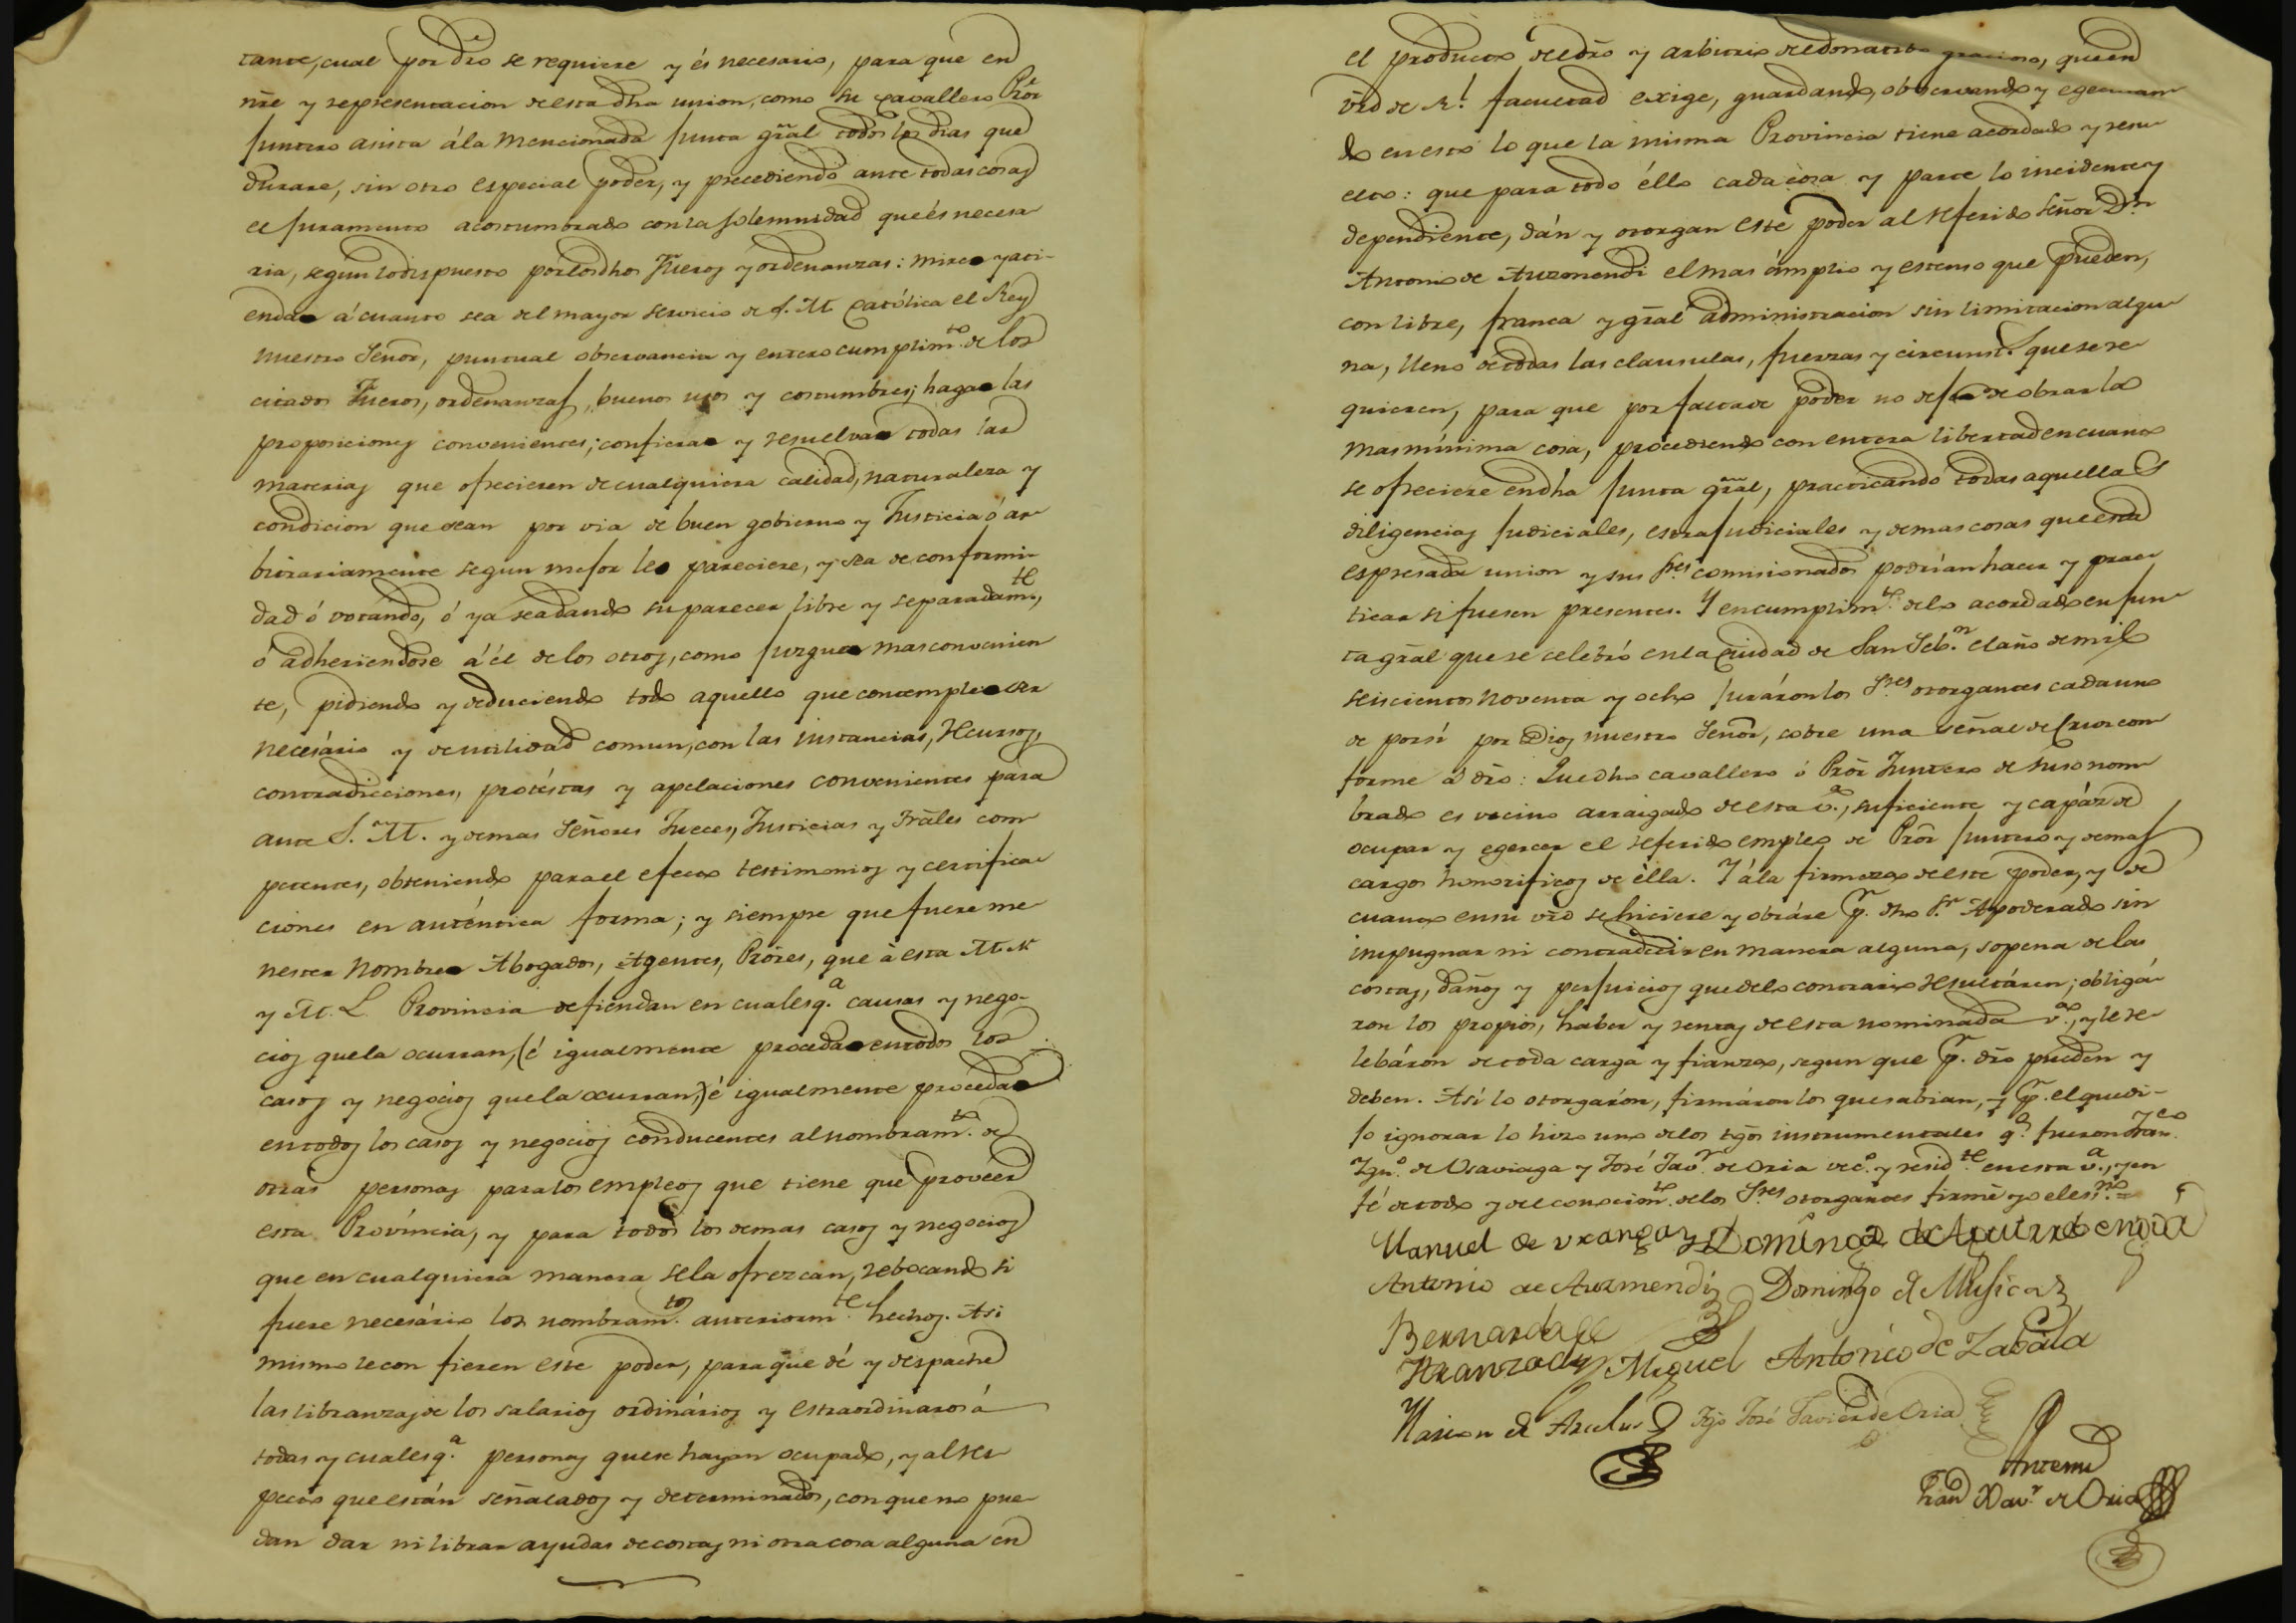 tante, cual por dro se requiere y és necesario, para que en
nre y representacion de esta dha union, como su cavallero Pror
juntero asista á la mencionada junta gral todos los dias que
durare, sin otro especial poder, y precediendo ante todas cosas
el juramento acostumbrado con la solemnidad que és necesa
ria, segun lo dispuesto por los dhos Fueros y ordenanzas: mire y ati-
enda á cuanto sea del mayor servicio de S. M. Católica el Rey
nuestro Señor, puntual observancia y entero cumplimto. de los
citados Fueros, ordenanzas, buenos usos y costumbres; haga las
proposiciones convenientes; confiera y resuelva todas las
materias que ofrecieren de cualquiera calidad, naturaleza y
condicion que sean por via de buen gobierno y Justicia ó ar
bitrariamente segun mejor le pareciere, y sea de conformi-
dad ó votando, ó ya sea dando su parecer libre y separadamte.,
ó adheriendose á él de los otros, como juzgue mas convenien
te, pidiendo y deduciendo todo aquello que contemple ser
necesário y de utilidad comun, con las instancias, Recursos,
contradicciones, protéstas y apelaciones convenientes para
ante S. M. y demas Señores Jueces, Justicias y Trales com
petentes, obteniendo para el efecto testimonios y certifica
ciones en auténtica forma; y siempre que fuere me
nester nombre Abogados, Agentes, Prores, que á esta M. N.
y M. L. Provincia defiendan en cualesqa. causas y nego-
cios que la ocurran, (é igualmente proceda en todos los
casos y negocios que la ocurran,) é igualmente proceda
en todos los casos y negocios conducentes al nombramto. de
otras personas para los empleos que tiene que proveér
esta Províncía, y para todos los demas casos y negocios
que en cualquiera manera se la ofrezcan, rebocando si
fuere necesário los nombramtos. anteriormte. hechos. Asi
mismo le confieren este poder, para que dé y despache
las libranzas de los salarios ordinários y estraordinaros á
todas y cualesqa. personas que se hayan ocupado, y al res
pecto que están señalados y determinados, con que no pue
dan dar ni librar ayudas de costas ni otra cosa alguna en
el producto del dro y arbitrio del donativo gracioso, que en
vrd de Rl. facultad exige, guardando, observando y egecutan
do en esto lo que la misma Provincia tiene acordado y resu
elto: que para todo éllo cada cosa y parte lo incidente y
dependiente, dán y otorgan este poder al referido Señor Dn.
Antonio de Auzmendi el mas ámplio y estenso que pueden,
con libre, franca y gral administracion sin limitacion algu
na, lleno de todas las clausulas, fuerzas y circunsts. que se re
quieren, para que por falta de poder no deje de obrar la
mas mínima cosa, procediendo con entera libertad en cuanto
se ofreciere en dha junta gral, practicando todas aquellas
diligencias judiciales, estrajudiciales y demas cosas que esta
espresada union y sus Sres. comisionados podrían hacer y prac
ticar si fuesen presentes. Y en cumplimto. de lo acordado en jun
ta gral que se celebró en la Ciudad de San Sebn. el año de mil
seiscientos noventa y ocho juráron los Sres. otorgantes cada uno
de por sí por Dios nuestro Señor, sobre una señal de cruz con
forme á dro: Que dho cavallero ó Pror Juntero de suso nom
brado es vecino arraigado de esta va., suficiente y capáz de
ocupar y egercer el referido empleo de Pror juntero y demas
cargos honorificos de élla. Y á la firmeza de este poder, y de
cuanto en su vrd se hiciere y obráre pr. dho Sr. Apoderado sin
impugnar ni contradecir en manera alguna, sopena de las
costas, daños y perjuicios que de lo contrario resultáren; obligá
ron los propios, haber y rentas de esta nominada va., y le re
lebáron de toda carga y fianza, segun que pr. dro pueden y
deben. Así lo otorgarón, firmáron los que sabian, y pr. el que di-
jo ignorar lo hizo uno de los tgos instrumentales qe. fueron Franco.
Igno. de Usaviaga y José Javr. de Oria veco. y residte. en esta va., y en
fé de todo y del conocimto. de los Sres. otorgantes firmé yo el esno. =
Manuel de uranga Domingo de Aguirrebengoa
Antonio de Auzmendi Domingo de Musica
Bernardo de
Aranzadi Miguel Antonio de Zabala
de Arelus Tgo José Javier de Oria
Antemi
Franco Xavr. de Oria